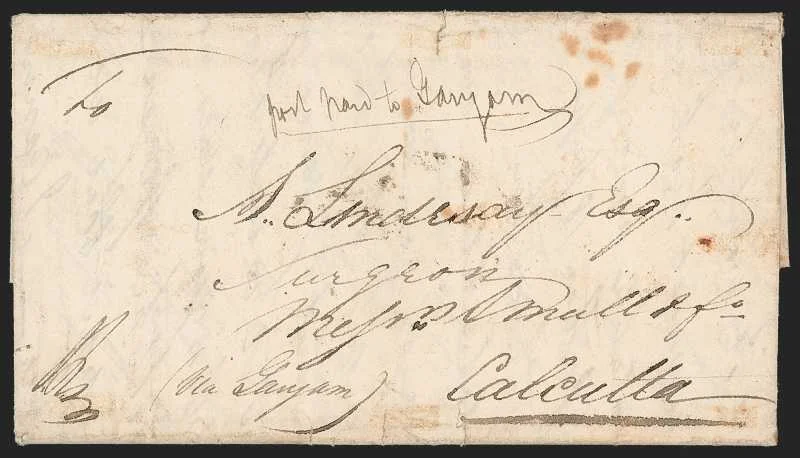 To
post paid to Ganjam
A. Lindesay Esq.
Surgeon
Messrs Small & Co
(via Ganjam)
Calcutta